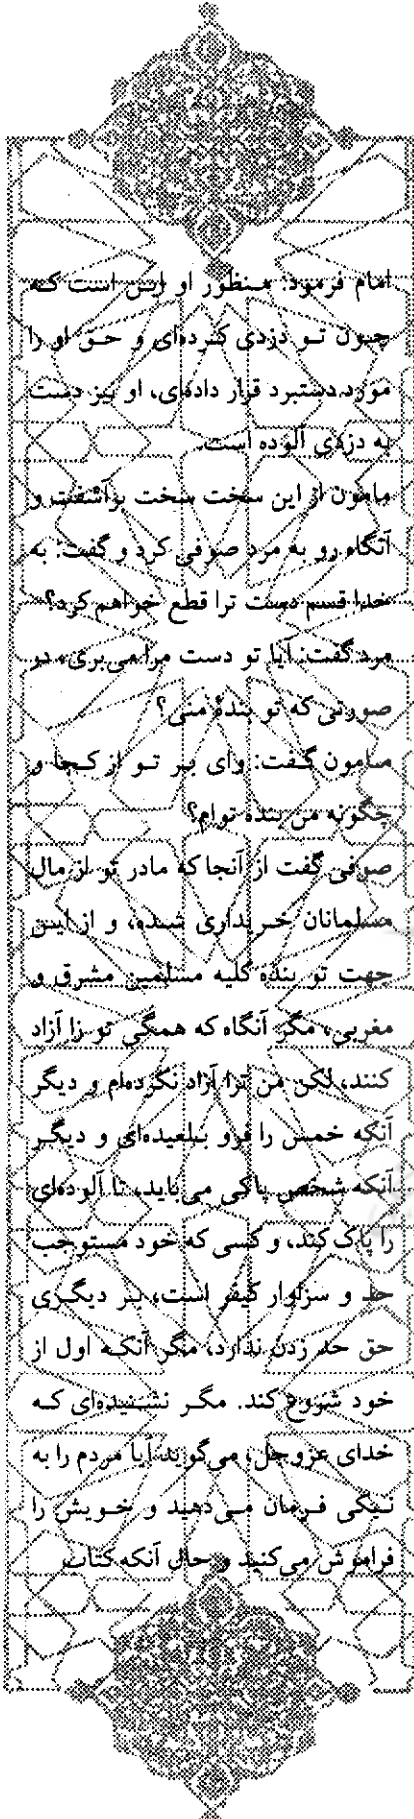 امام فرمود: منظور او این است که
چون تو دزدی کرده‌ای و حق او را
مورد دستبرد قرار داده‌ی، او نیز دست
به دزدی آلوده است.
مامون از این سخت سخت برآشفت و
آنگاه رو به مرد صوفی کرد و گفت: به
خدا قسم دست ترا قطع خواهم کرد؟
مرد گفت: آیا تو دست مرا می‌بری، در
صورتی که تو بندهٔ منی؟
مامون گفت: وای بر تو از کجا و
چگونه من بنده توام؟
صوفی گفت از آنجا که مادر تو از مال
مسلمانان خریداری شده، و از این
جهت تو بندهٔ کلیه مسلمین مشرق و
مغربی، مگر آنگاه که همگی تو را آزاد
کنند، لکن من ترا آزاد نکرده‌ام و دیگر
آنکه خمس را فرو بلعیده‌ای و دیگر
آنکه شخص پاکی می‌باید، تا آلوده‌ای
را پاک کند، و کسی که خود مستوجب
حد و سزاوار کیفر است، بر دیگری
حق حد زدن ندارد، مگر آنکه اول از
خود شروع کند. مگر نشنیده‌ای که
خدای عزوجل، می‌گوید آیا مردم را به
نیکی فرمان می‌دهید و خویش را
فراموش می‌کنید و حال آنکه کتاب